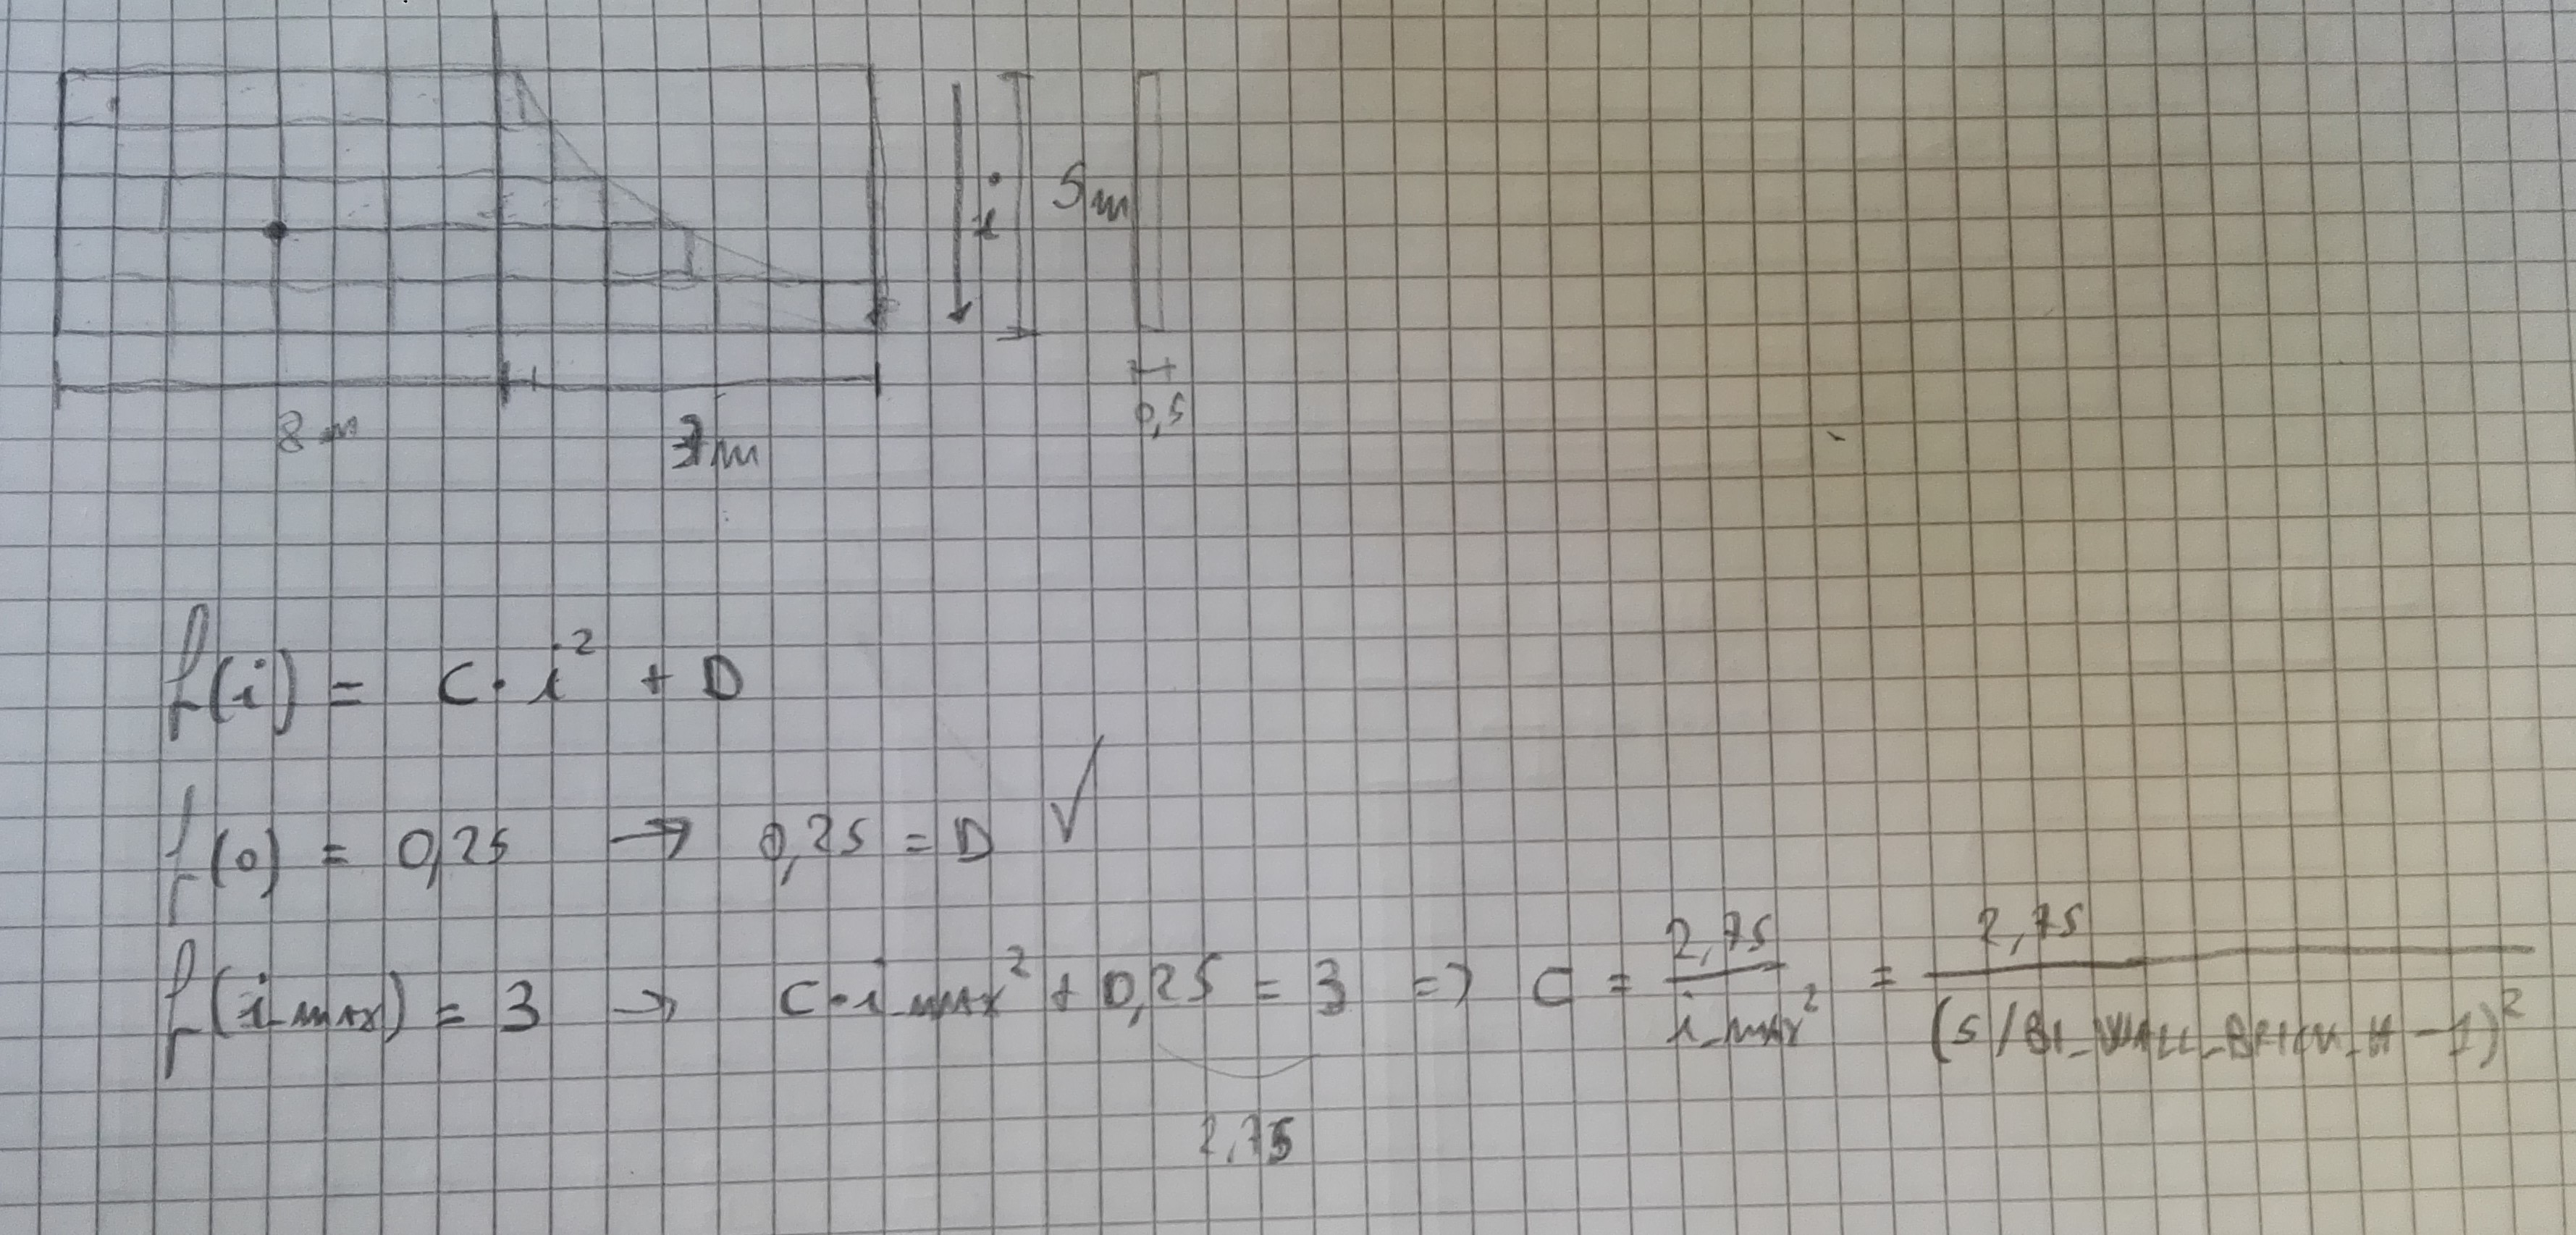 i
5m
0,5
8 m
m
f(i) = C · i² + D
f(0) = 0,25 → 0,25 = D ✓
f(i_max) = 3 → C · i_max² + 0,25 = 3 => C = 2,75 / i_max² = 2,75 / (5/BI_WALL_BRICK_H - 1)²
2,75